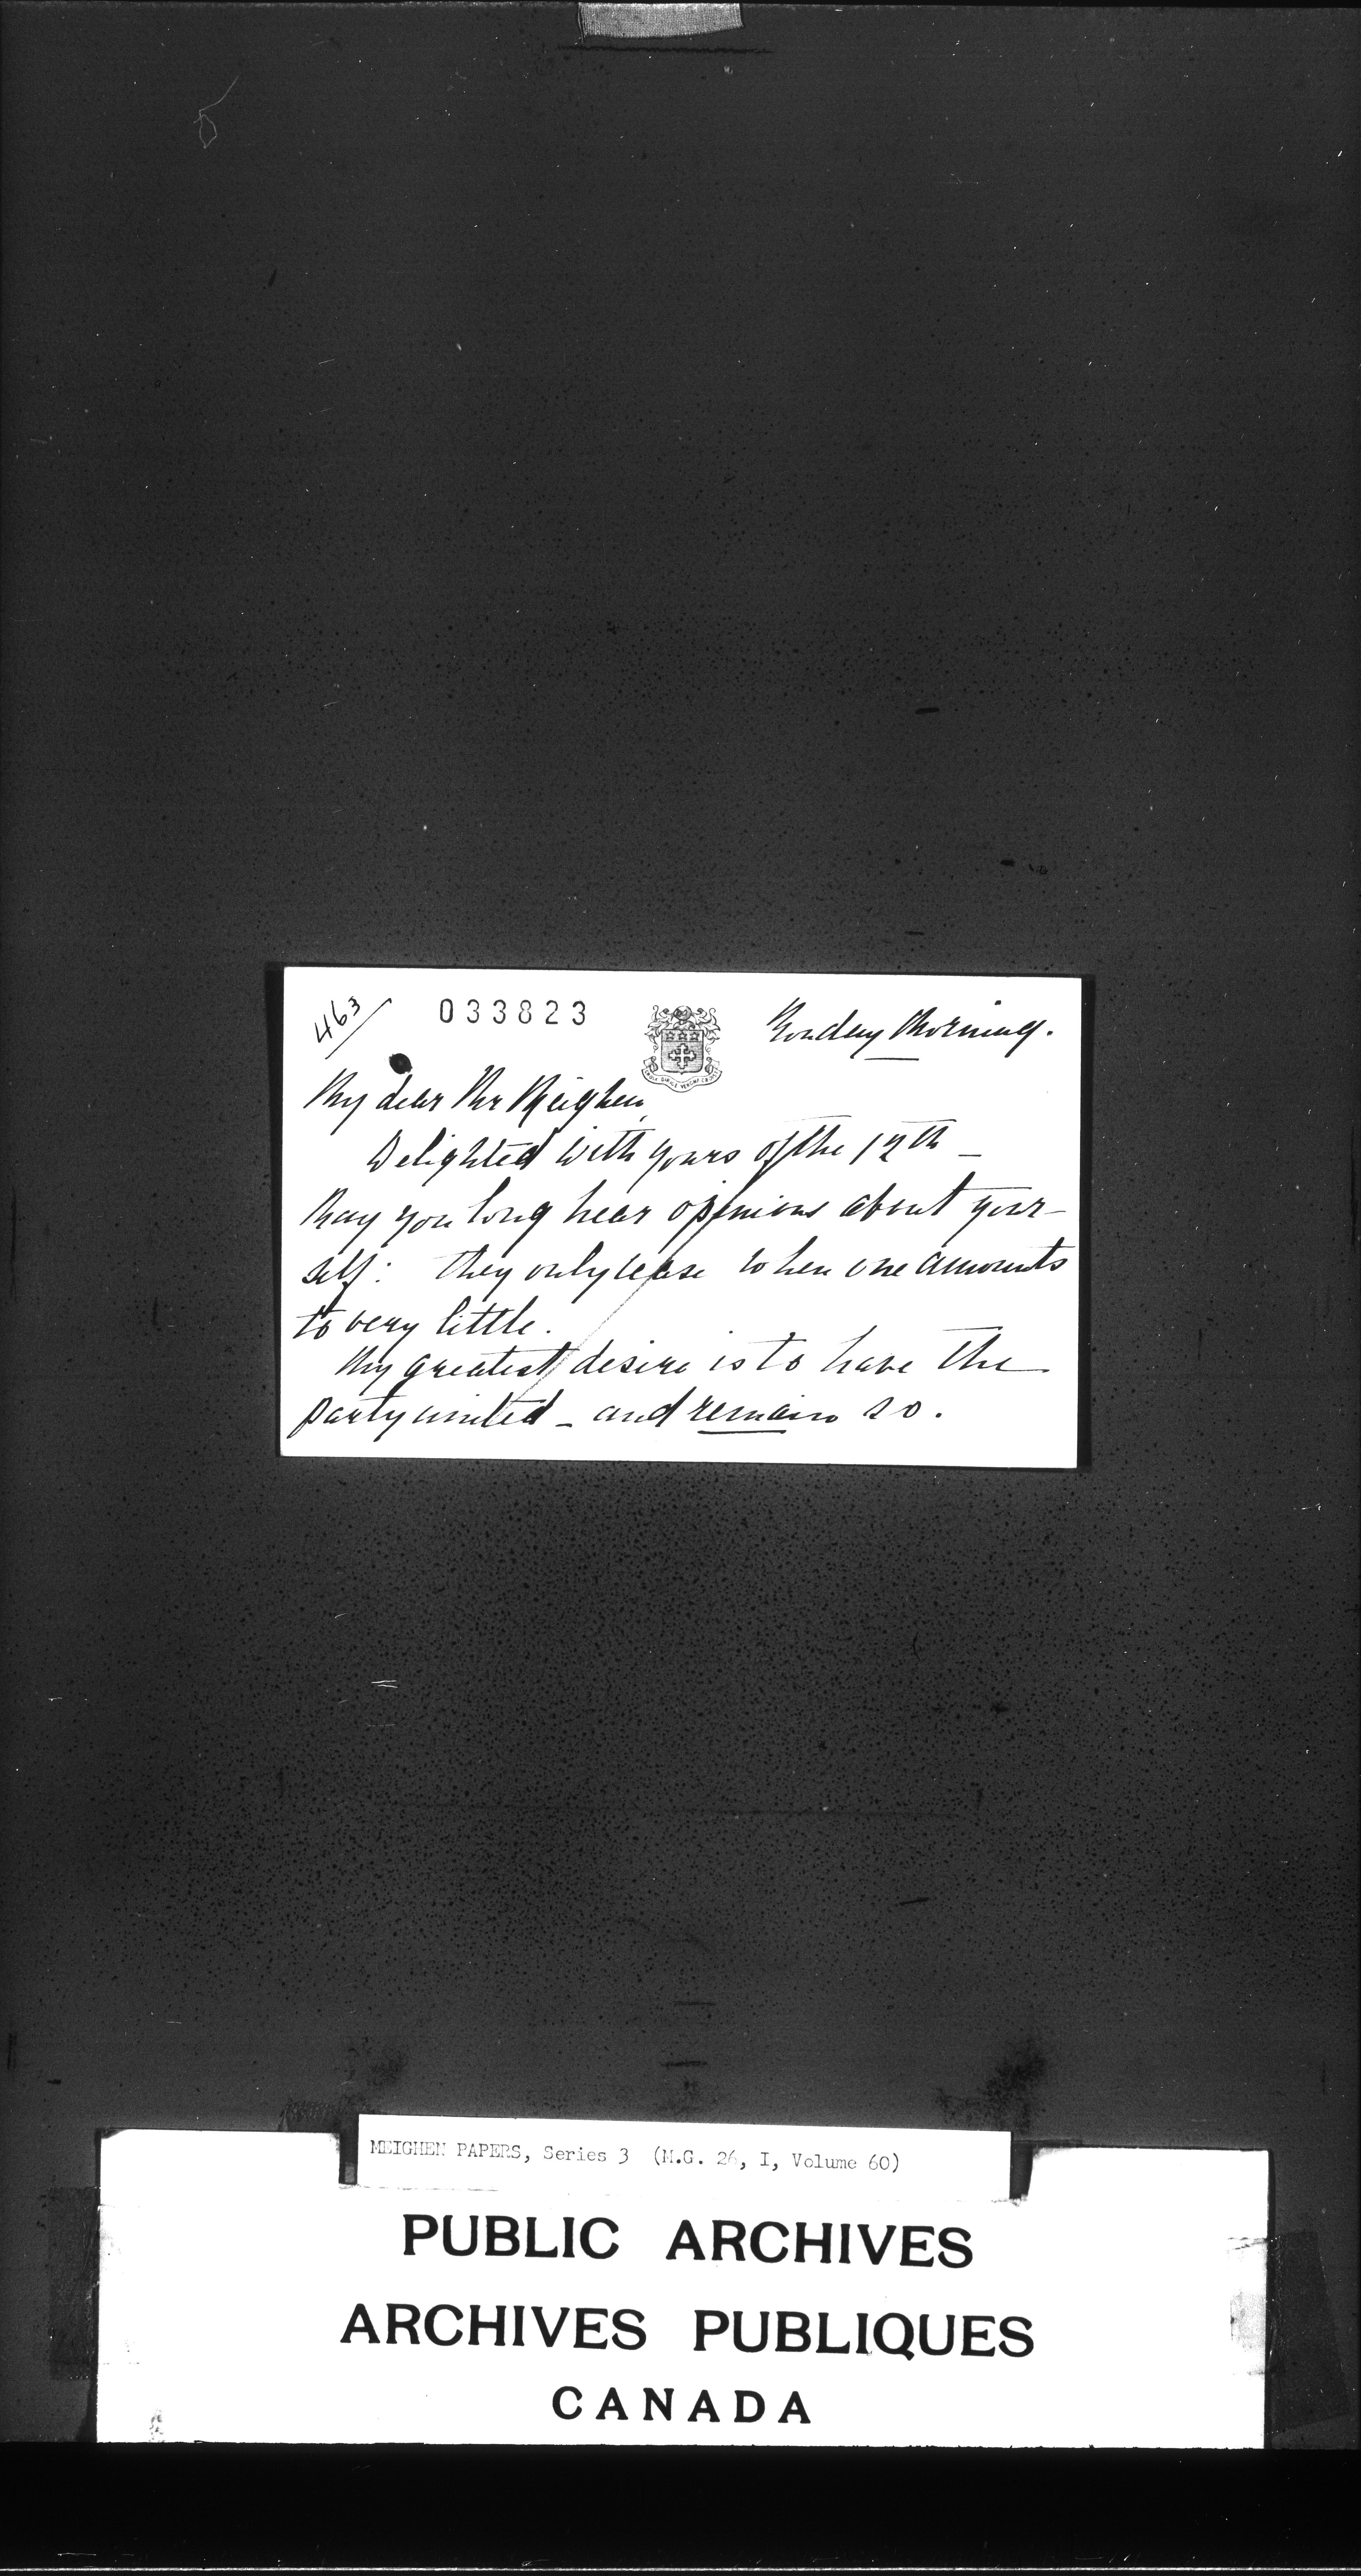 463
033823
Monday Morning.
My dear Mr Meighen,
Delighted with yours of the 12th –
May you long hear opinions about your-
self: they only cease when one amounts
to very little.
My greatest desire is to have the
party united – and remain so.
MEIGHEN PAPERS, Series 3 (M.G. 26, I, Volume 60)
PUBLIC ARCHIVES
ARCHIVES PUBLIQUES
CANADA